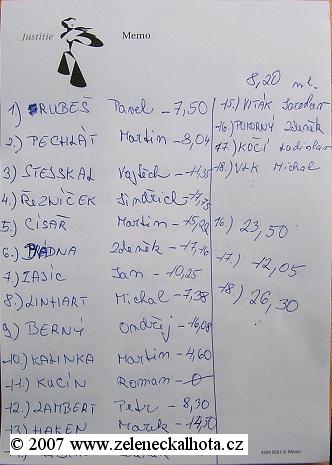 Justitie Memo
8,20
1.) RUBEŠ Pavel - 7,50
2.) PECHLÁT Martin - 8,04
3) STEJSKAL Vojtěch - 11,35
4.) ŘEZNÍČEK Jindřich
5.) CÍSAŘ Martin
6.) Zdeněk - 17,16
7.) ZAJÍC Jan - 10,25
8.) LINHART Michal - 7,38
9) BERNÝ Ondřej - 16,08
10.) KALINKA Martin - 4,60
11.) KUČÍN Roman - 0
12.) LAMBERT Petr - 8,30
13) HAKEN Marek
15.) VITÁK Jaroslav
16.) POKORNÝ Zdeněk
17.) KOČÍ Ladislav
18.) VLK Michal
16.) 23,50
17.) 12,05
18.) 26,30
Memo
© 2007 www.zeleneckalhota.cz